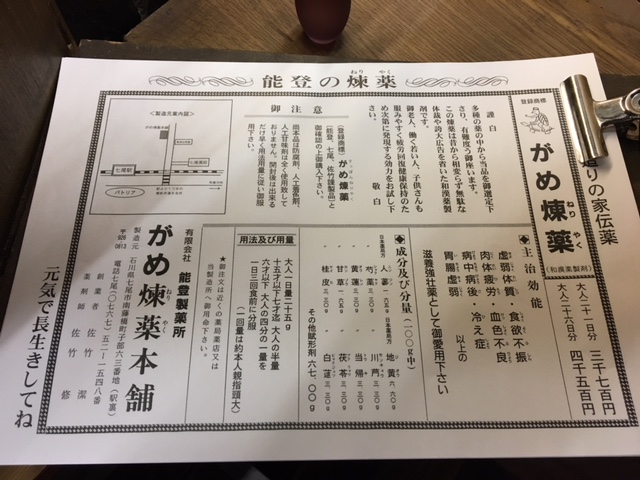 能登の煉薬
登録商標
がめ煉薬
(和漢薬製剤)
りの家伝薬
大人二十一日分 三千七百円
大人二十六日分 四千五百円
謹白
多種の薬の中から当品を御選定下
さり、有難度う御座います。
この煉薬は昔から相変らず無駄な
体裁や誇大広告を省いた和漢薬製
剤です。
御老人、働く若い人、子供さんも
服みやすく疲労回復健康保持のた
め次第に発現する効力をお試し下
さい。
敬白
御注意
(登録商標)がめ煉薬
(能登、七尾、佐竹謹製品)と
御確認の上御購入下さい。
尚本品は防腐剤、人工着色剤、
人工甘味剤は全く使用致して
おりません。開封後は出来る
だけ早く用法用量に従い御服
用下さい。
<製造元案内図>
七尾駅
パトリア
◆主治効能
虚弱体質・食欲不振
肉体疲労・血色不良
病中病後・冷え症
胃腸虚弱 以上の
滋養強壮薬として御愛用下さい
◆成分及び分量(二〇〇g中)
日本薬局方 人蔘 六・六〇g
〃 芍薬 三・三〇g
〃 黄蓮 三・三〇g
〃 黄耆 三・三〇g
〃 甘草 一・六五g
〃 桂皮 三・三〇g
日本薬局方 地黄 六・六〇g
〃 川芎 三・三〇g
〃 当帰 三・三〇g
〃 茯苓 三・三〇g
〃 白蓮 三・三〇g
その他賦形剤 六七・〇〇g
用法及び用量
大人一日量二十五g
十五才以下七才迄 大人の半量
六才以下 大人の四分の一量を
一日三回食前に分服
(一回量は約本人親指頭大)
★御注文は近くの薬局薬店又は
当製造所へ御用命下さい。
有限会社 能登製薬所
がめ煉薬本舗
製造元 石川県七尾市南藤橋町子部六三番地(駅裏)
〒926-0813 電話七尾〇七六七)五二-一五四八番
創業者 佐竹 潔
薬剤師 佐竹 修
元気で長生きしてね